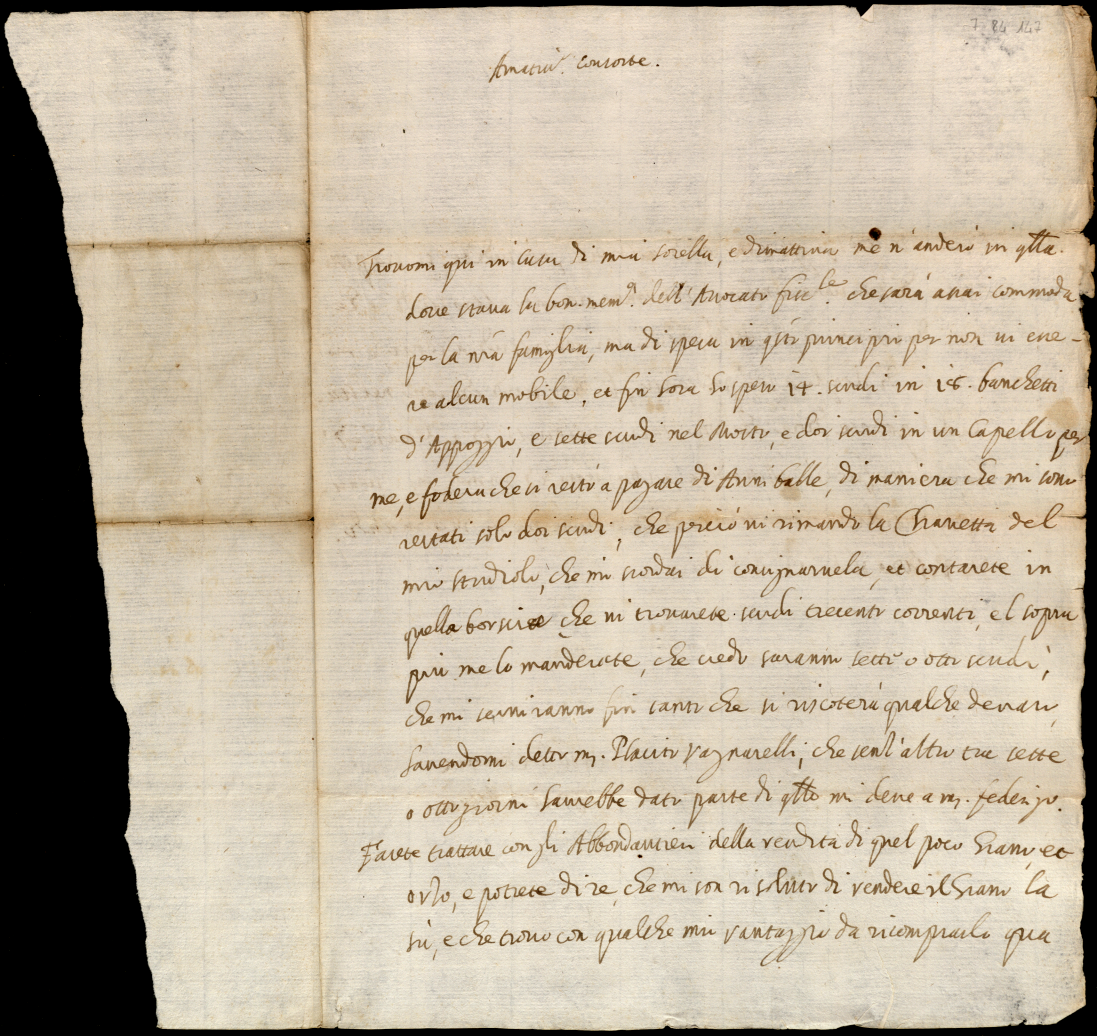 7 84 147
Amatiss.ª Consorte.
Trovomi qui in casa di mia sorella, e dimattina me n'anderò in q̃lla
dove stava la bon. mem.ª dell' Avocato fisc.le che sarà assai commoda
per la mia famiglia, ma di spesa in q̃sti principii per non vi esse-
re alcun mobile, et fin hora ho speso 14. scudi in 18. banchetti
d'Appoggio, e sette scudi nel , e doi scudi in un Capello per
me, e fodera che si restò a pagare di Anniballe, di maniera che mi sono
restati solo doi scudi, che perciò vi rimando la Chiavetta del
mio studiolo, che mi scordai di consignarvela, et contarete in
quella borsa che vi trovarete scudi trecento correnti, e'l sopra
più me lo manderete, che credo saranno sette o otto scudi,
che mi serviranno fin tanto che si riscoterà qualche denaro,
havendomi detto m. Placito Vagnarelli, che senz'altro tra sette
o otto giorni haverebbe dato parte di q̃llo mi deve a m. federigo.
Farete trattare con gli Abbondantieri della vendita di quel poco Grano, et
orzo, e potrete dire, che mi son risoluto di vendere il Grano la
sù, e che trovo con qualche mio vantaggio da ricomprarlo qua